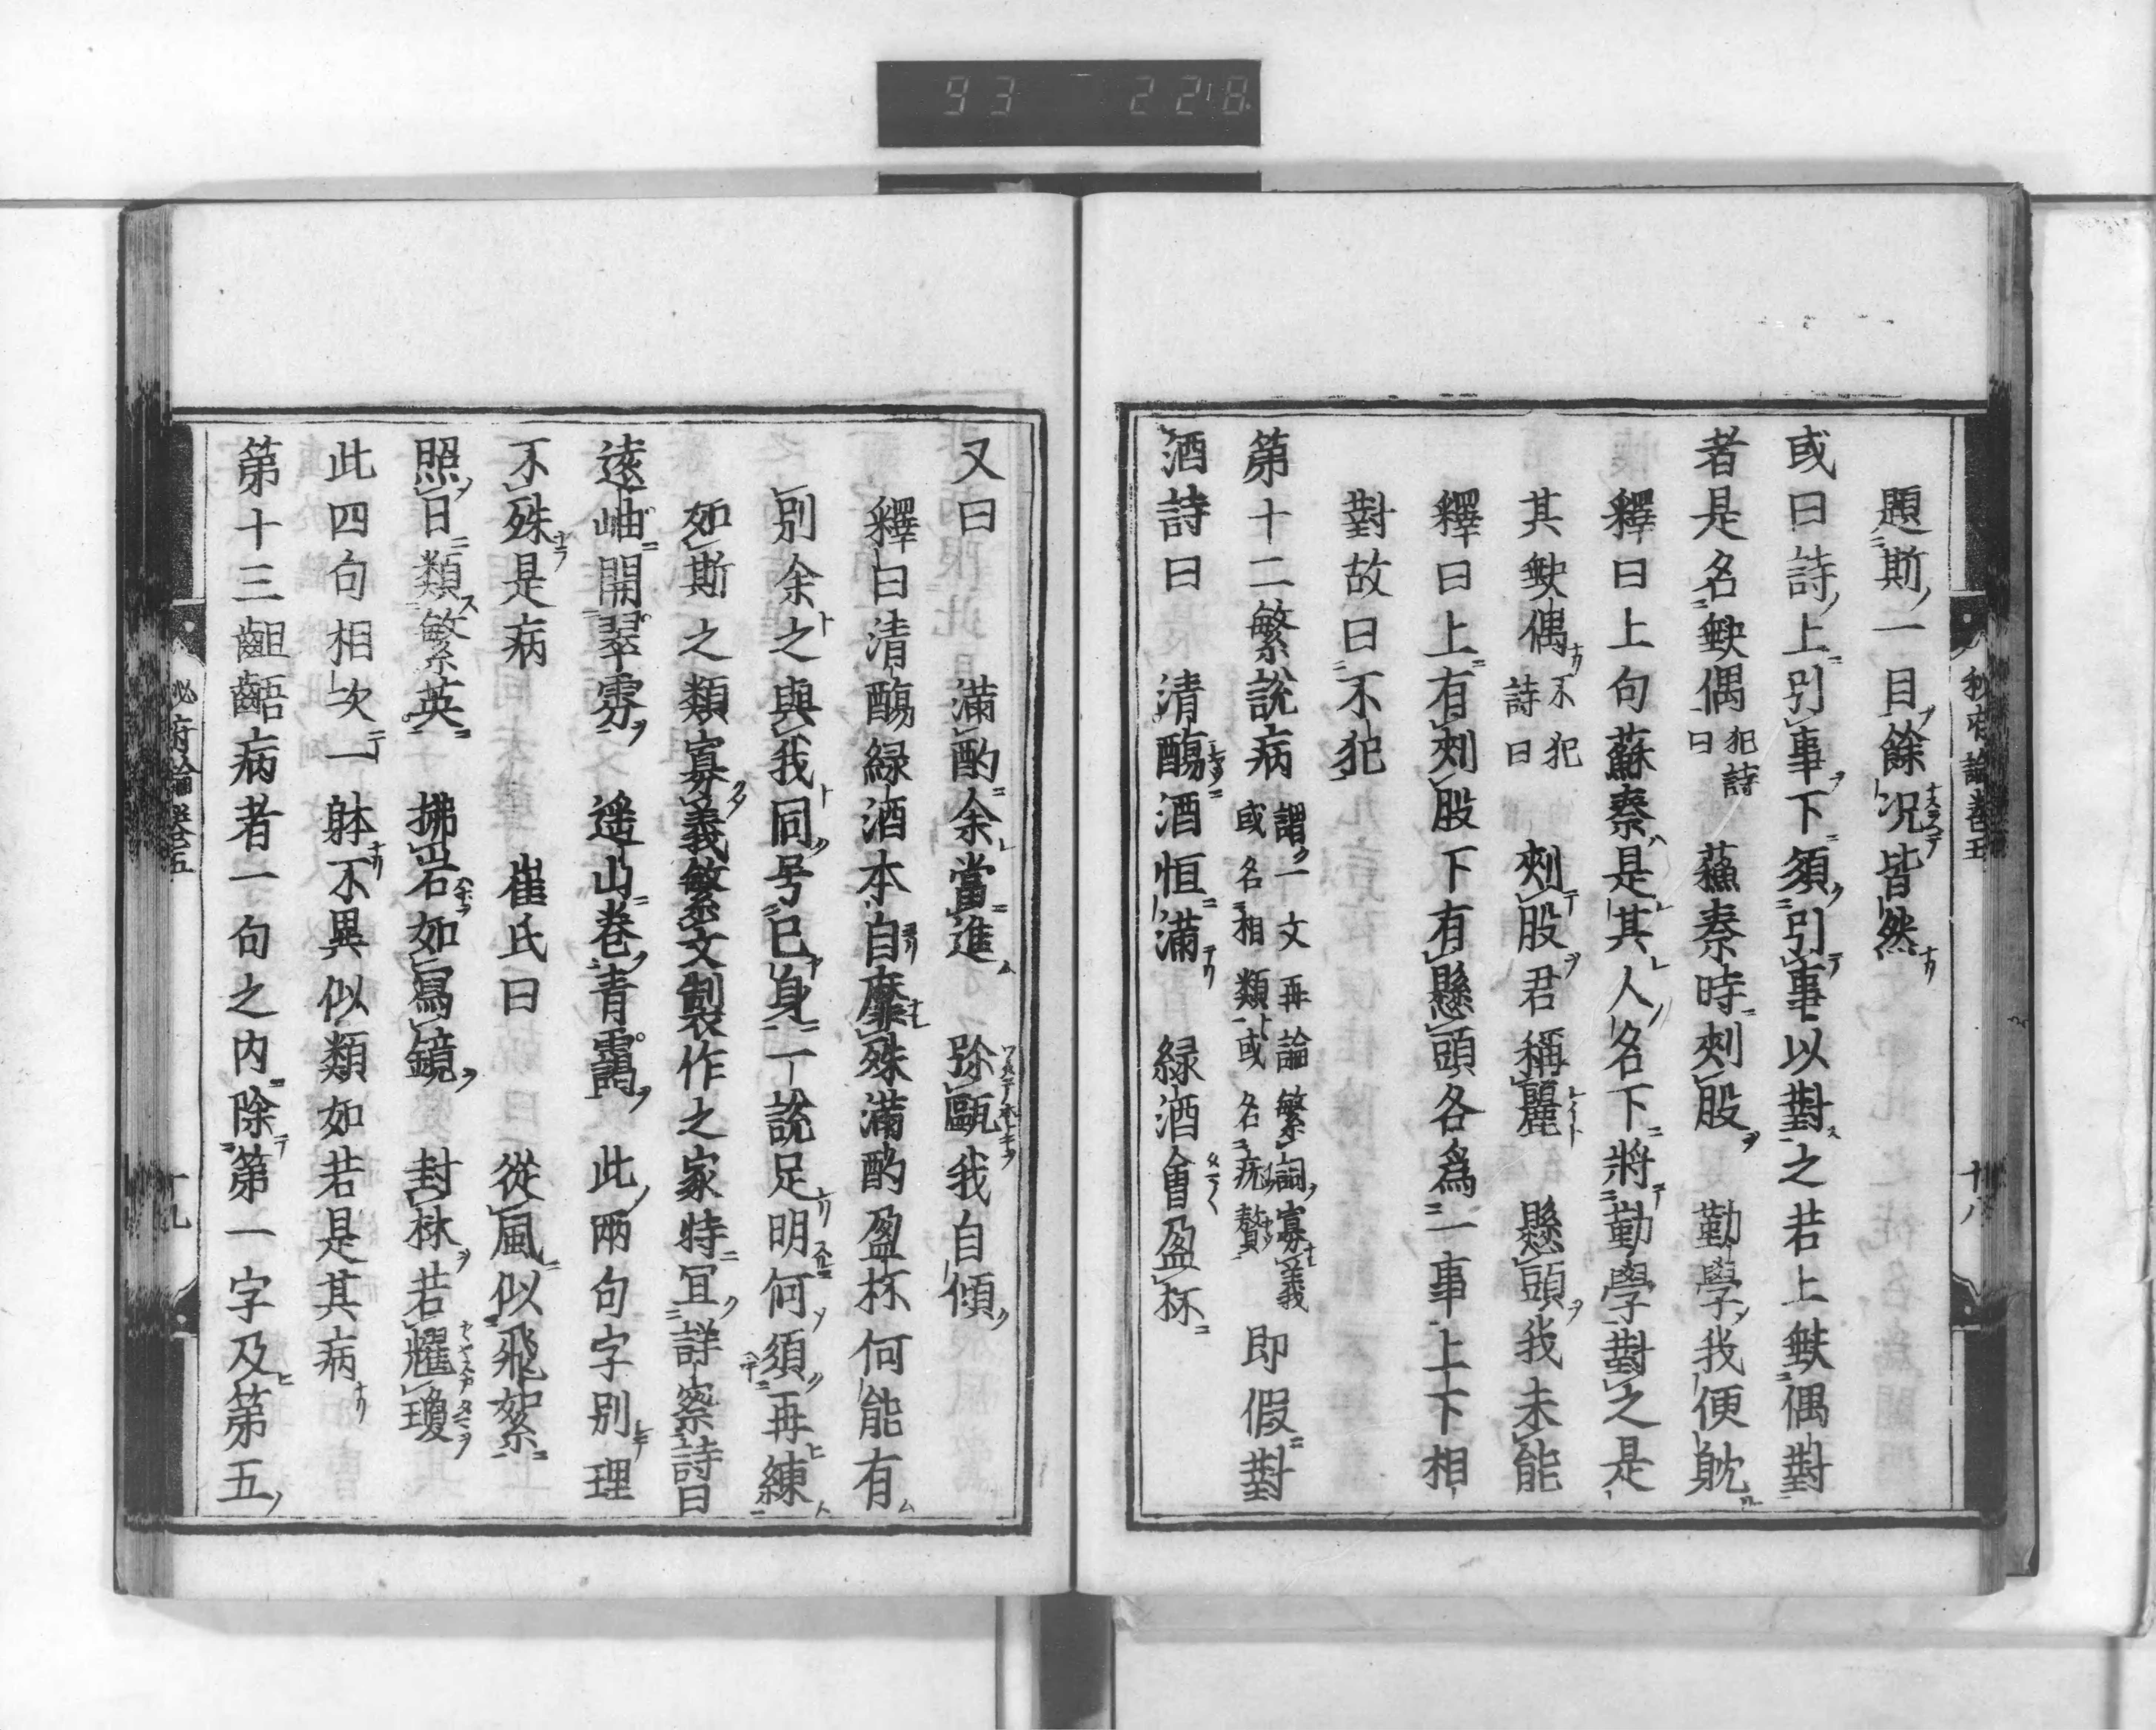 93 228
秘府論卷五
十八
題斯一目餘况皆然
或曰詩上引事下須引事以對之若上缺偶對
者是名缺偶 犯詩曰 蘇秦時刺股 勤學我便躭
釋曰上句蘇秦是其人名下將勤學對之是
其缺偶 不犯詩曰 刺股君稱麗 懸頭我未能
釋曰上有刺股下有懸頭各爲一事上下相
對故曰不犯
第十二繁說病 謂一文再論繁詞寡義或名相類或名疣贅 即假對
酒詩曰 清醑酒恒滿 綠酒會盈杯
又曰 滿酌余當進 弥甌我自傾
釋曰清醑緑酒本自靡殊滿酌盈杯何能有
別余之與我同号已身一說足明何須再練
如斯之類寡義繁文製作之家特宜詳察詩曰
遠岫開翠雰 遥山卷青靄 此兩句字別理
不殊是病 崔氏曰 從風似飛絮
照日類繁英 拂岩如寫鏡 封林若耀瓊
此四句相次一躰不異似類如若是其病
第十三齟齬病者一句之内除第一字及第五
秘府論卷五
十九